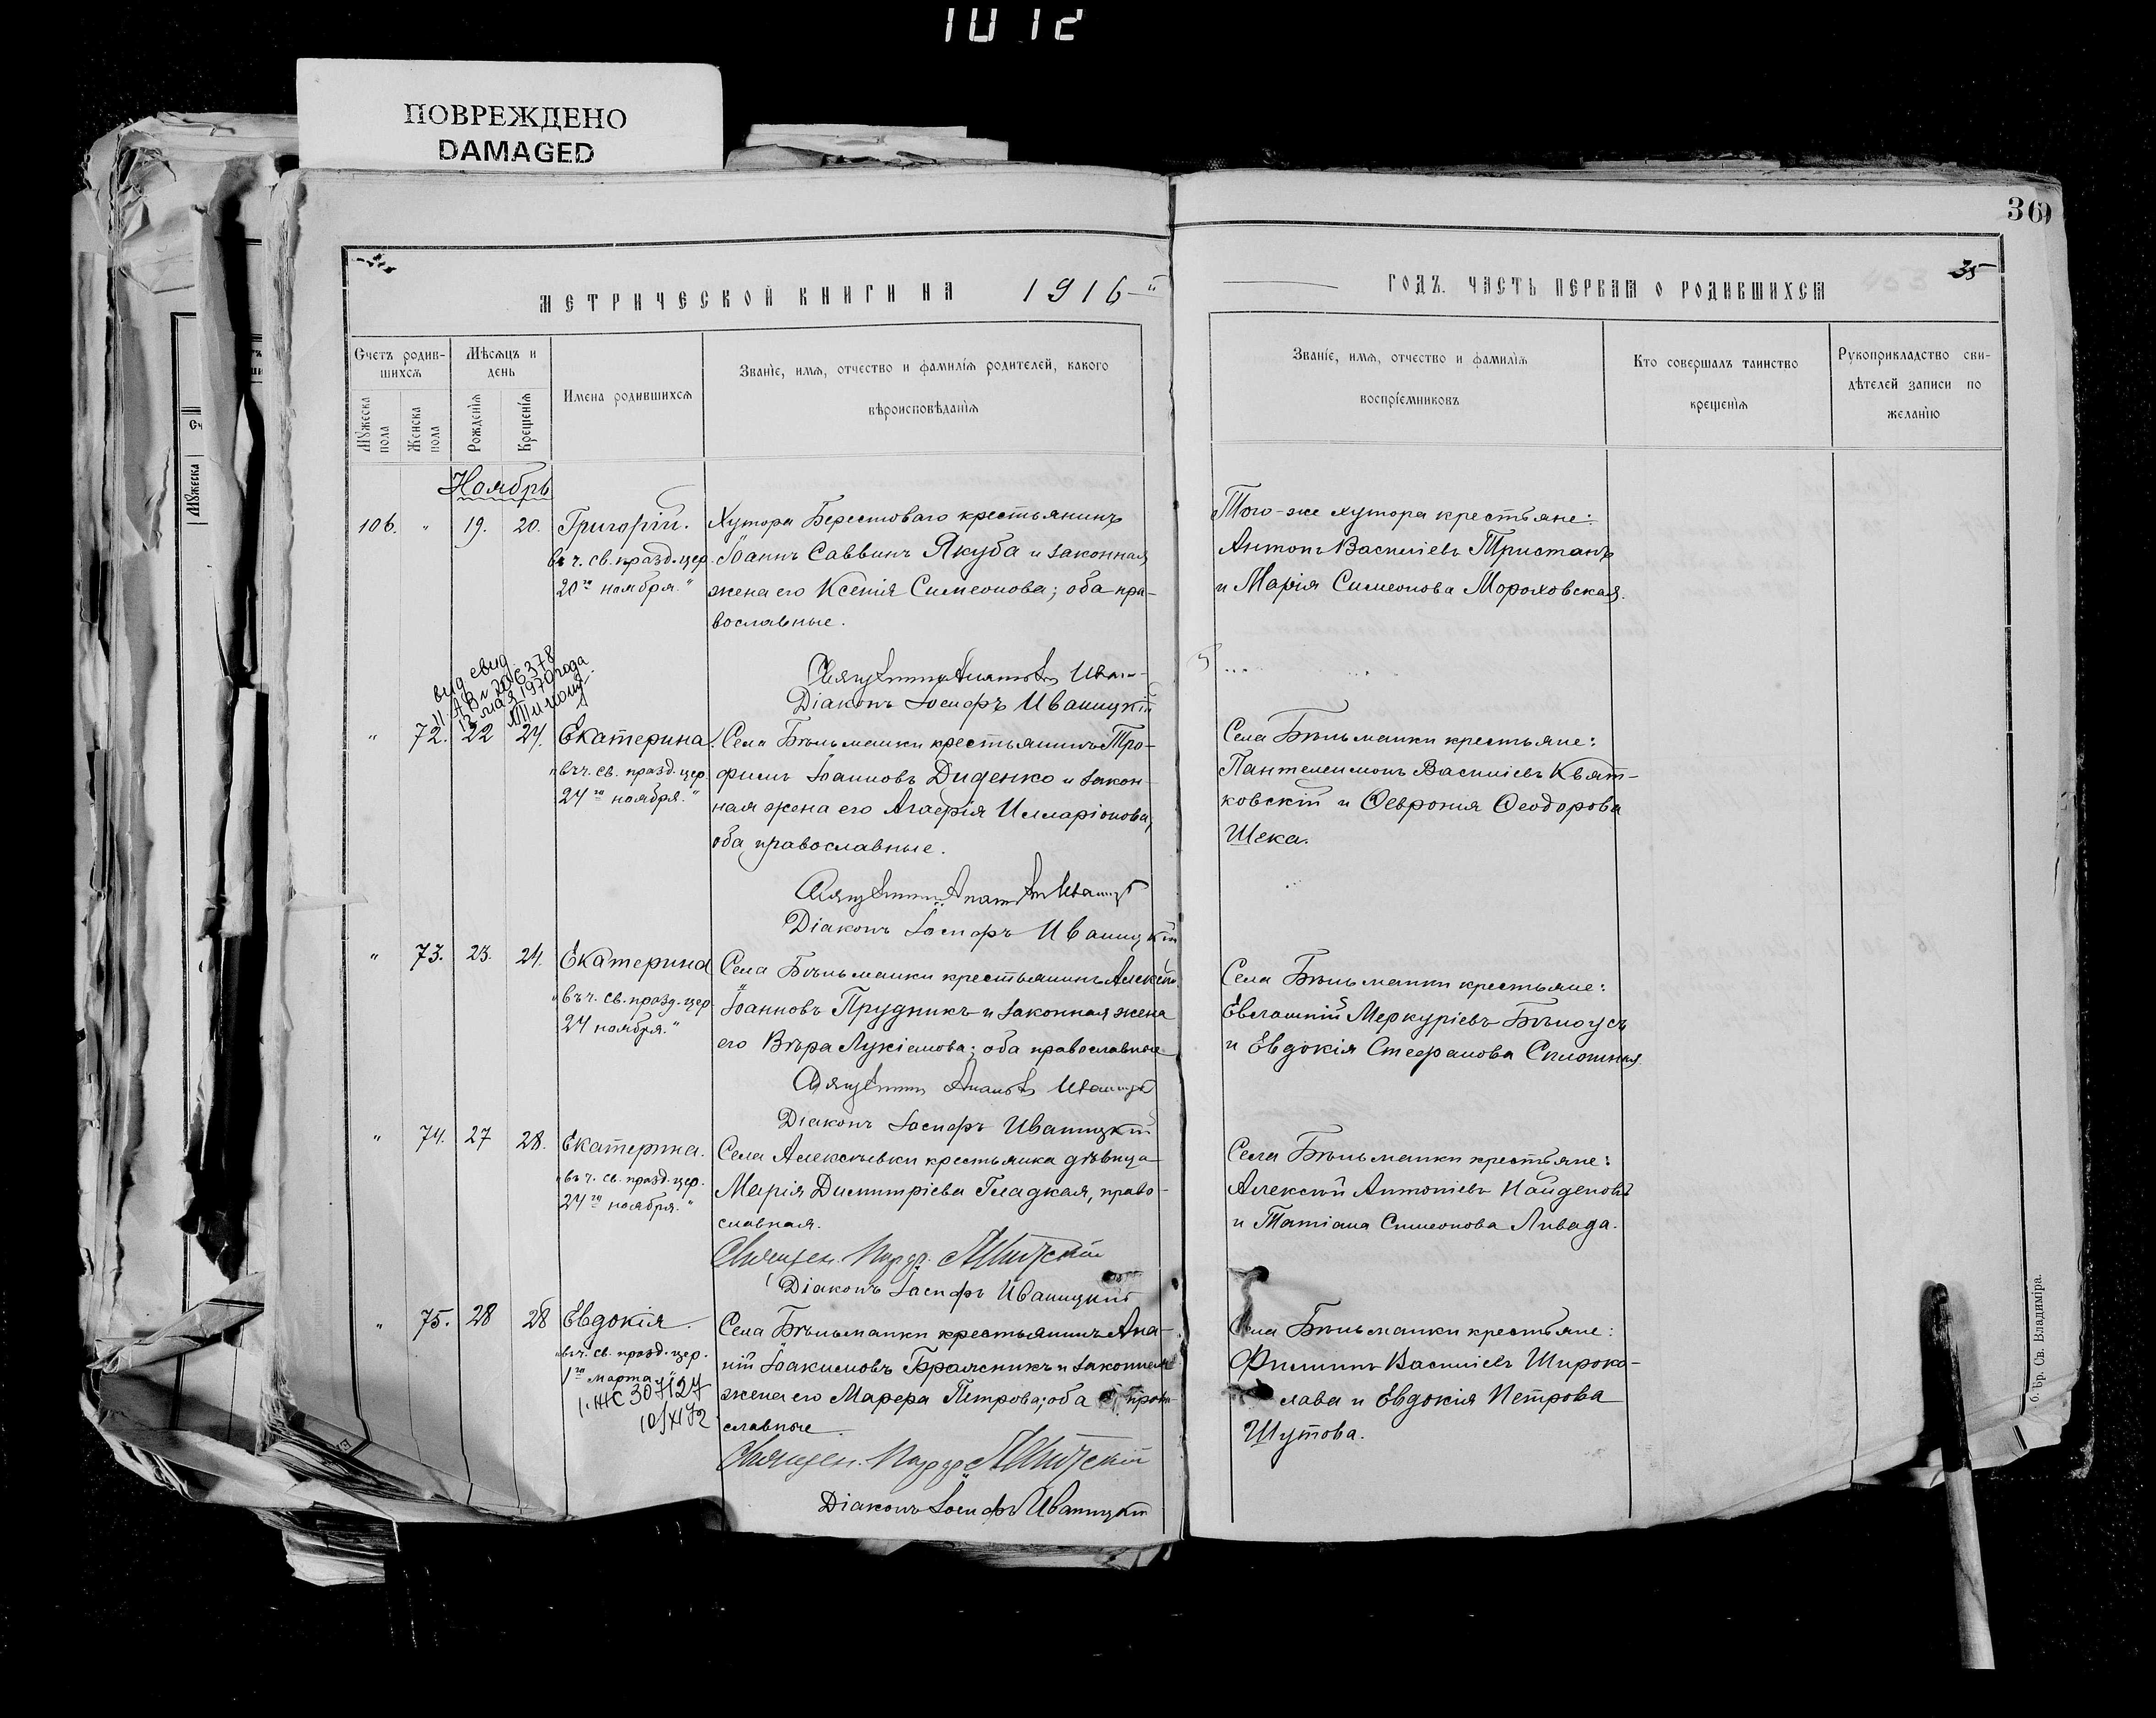 1012
ПОВРЕЖДЕНО
DAMAGED
36
35
МЕТРИЧЕСКОЙ КНИГИ НА 1916 й
ГОДЪ. ЧАСТЬ ПЕРВАЯ О РОДИВШИХСЯ
Счетъ родив-
шихся
Мѣсяцъ и
день
Мꙋжеска
пола
Женска
пола
Рожденія
Крещенія
Имена родившихся
Званіе, имя, отчество и фамилія родителей, какого
вѣроисповѣданія
Званіе, имя, отчество и фамилія
воспріемниковъ
Кто совершалъ таинство
крещенія
Рукоприкладство сви-
дѣтелей записи по
желанію
Ноябрь
106. " 19. 20. Григорій.
въ ч. св. празд. цер.
20го ноября."
Хутора Берестоваго крестьянинъ
Іоаннъ Саввинъ Якуба и законная
жена его Ксенія Симеонова; оба пра-
вославные.
Діаконъ Іосифъ Иваницкій
Того-же хутора крестьяне:
Антонъ Василіевъ Тристанъ
и Марія Симеонова Мороховская.
выд. свид.
12 мая 1970 года
" 72. 22 24. Екатерина.
"въ ч. св. празд. цер.
24го ноября."
Села Бѣльманки крестьянинъ Тро-
фимъ Іоанновъ Диденко и закон-
ная жена его Агафія Илларіонова,
оба православные.
Діаконъ Іосифъ Иваницкій
Села Бѣльманки крестьяне:
Пантелеимонъ Василіевъ Квят-
ковскій и Ѳевронія Ѳеодорова
Шека.
" 73. 23. 24. Екатерина
"въ ч. св. празд. цер.
24 ноября."
Села Бѣльманки крестьянинъ Алексѣй
Іоанновъ Прудникъ и законная жена
его Вѣра Лукіанова; оба православные
Діаконъ Іосифъ Иваницкій
Села Бѣльманки крестьяне:
Евлампій Меркуріевъ Бѣлоусъ
и Евдокія Стефанова
" 74. 27 28. Екатерина.
"въ ч. св. празд. цер.
24го ноября."
Села Алексѣевки крестьянка дѣвица
Марія Димитріева Гладкая, право-
славная.
Діаконъ Іосифъ Иваницкій
Села Бѣльманки крестьяне:
Алексій Антоніевъ Найденовъ
и Татіана Симеонова Ливада.
" 75. 28 28 Евдокія.
"въ ч. св. празд. цер.
1го марта
І-ЖС 307127
10/XI 72
Села Бѣльманки крестьянинъ Ана-
ній Іоакимовъ Бражникъ и законная
жена его Марфа Петрова; оба право-
славные.
Діаконъ Іосифъ Иваницкій
Села Бѣльманки крестьяне:
Филиппъ Василіевъ Широко-
лава и Евдокія Петрова
Шутова.
б. Бр. Св. Владиміра.